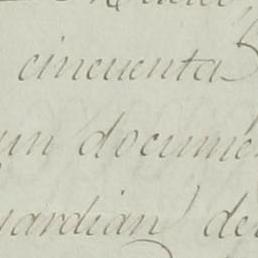 cincuenta
un docume
uardian de